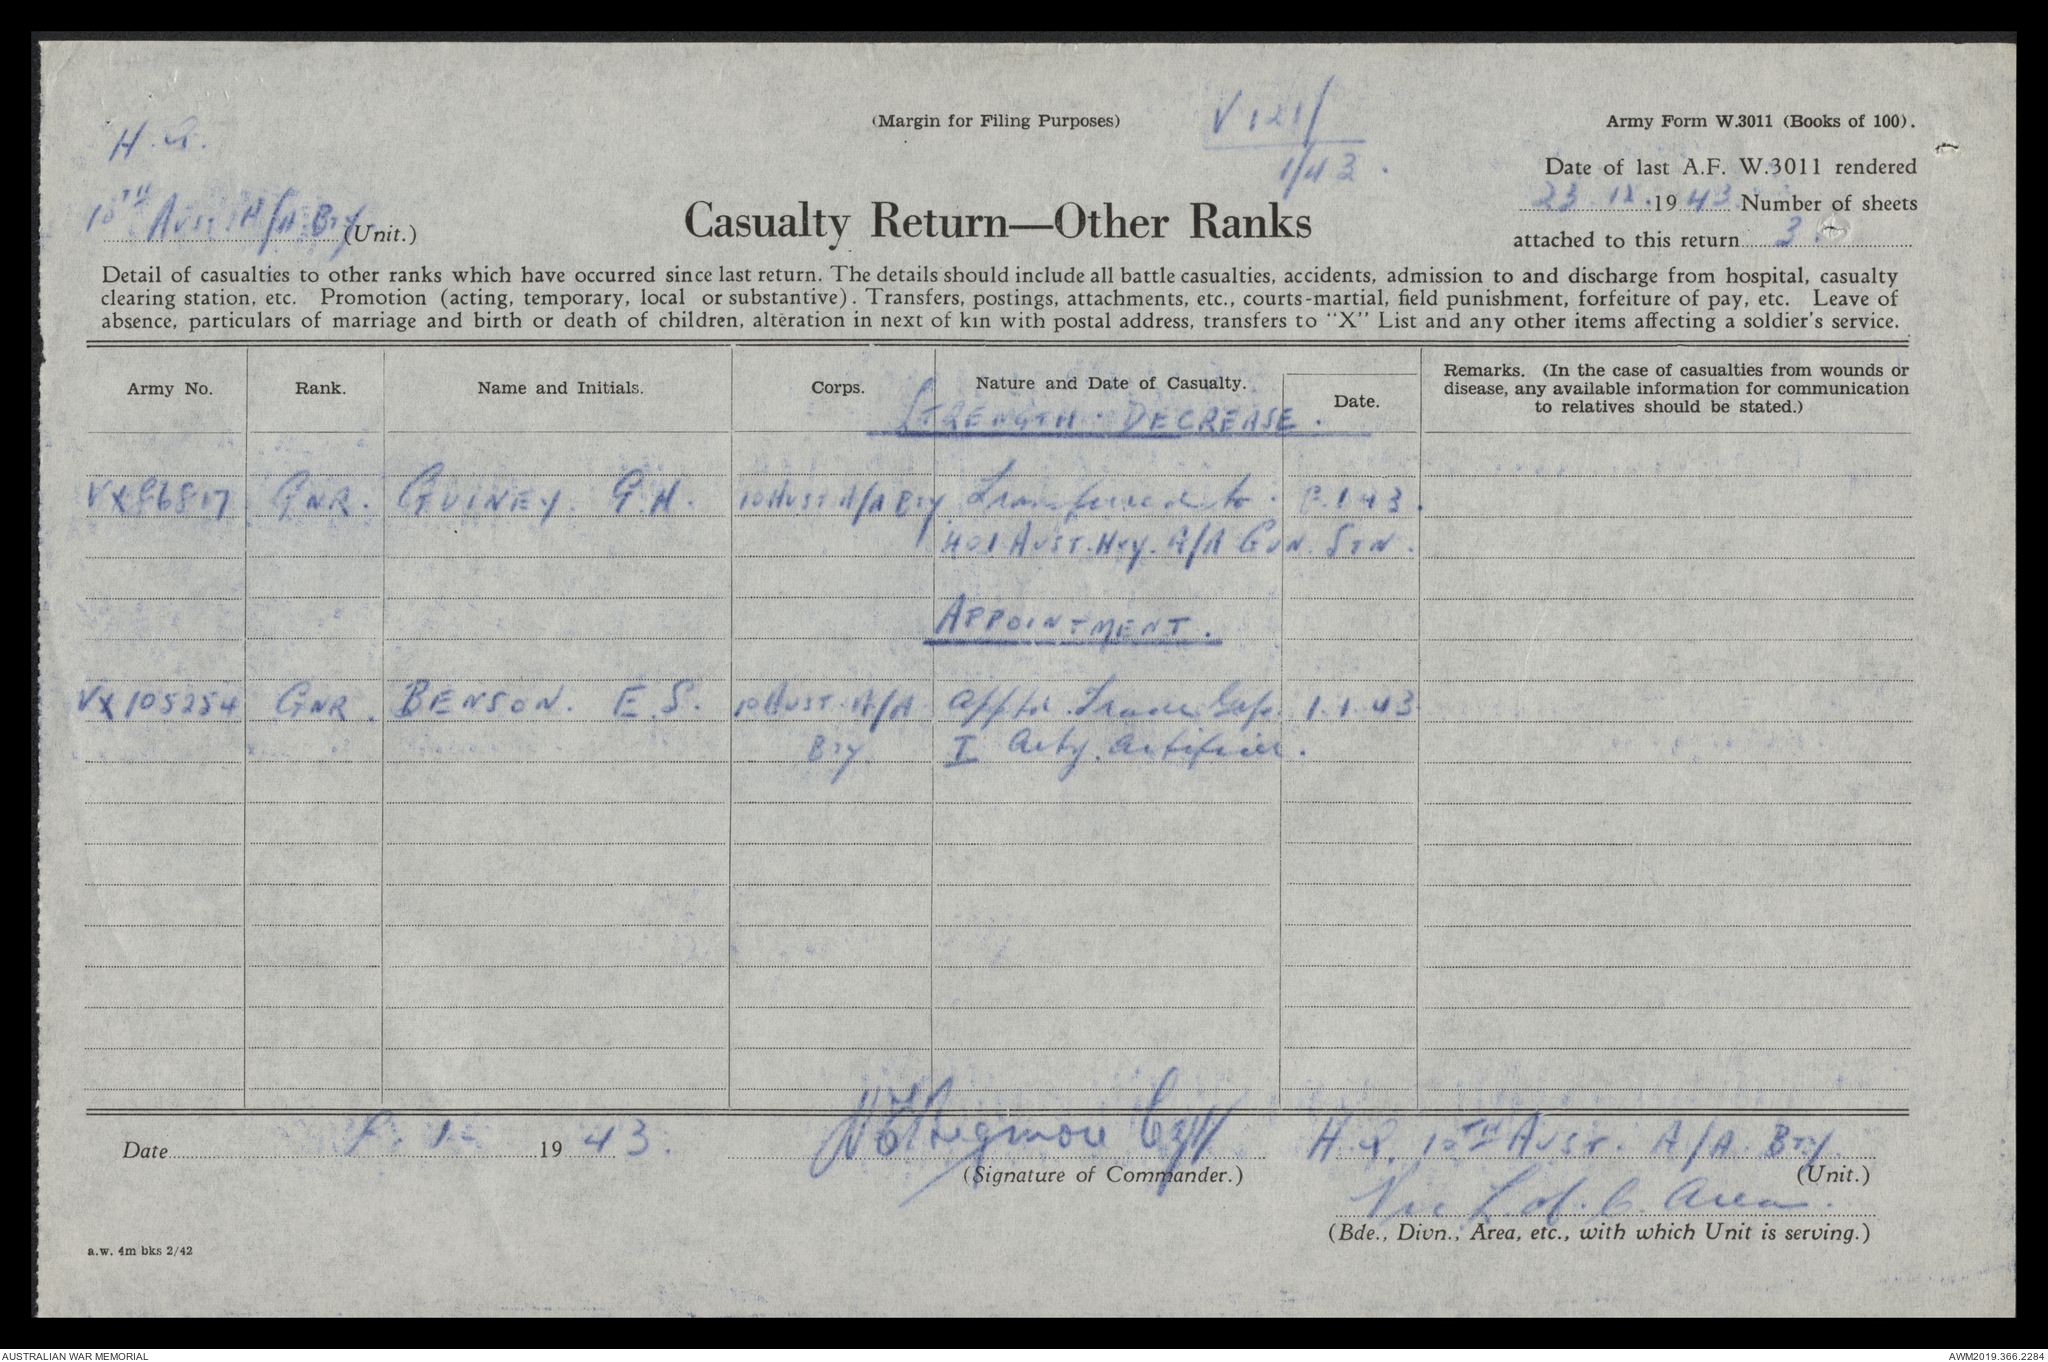 (Margin for Filing Purposes)
V 121/
1/43.
Army Form W.3011 (Books of 100).
H.Q.
10TH AUST A/A BTY (Unit.)
Casualty Return—Other Ranks
Date of last A.F. W.3011 rendered
23 12. 19 43. Number of sheets
attached to this return 3.
Detail of casualties to other ranks which have occurred since last return. The details should include all battle casualties, accidents, admission to and discharge from hospital, casualty
clearing station, etc. Promotion (acting, temporary, local or substantive). Transfers, postings, attachments, etc., courts-martial, field punishment, forfeiture of pay, etc. Leave of
absence, particulars of marriage and birth or death of children, alteration in next of kin with postal address, transfers to "X" List and any other items affecting a soldier's service.
Army No. Rank. Name and Initials. Corps. Nature and Date of Casualty. Date. Remarks. (In the case of casualties from wounds or
disease, any available information for communication
to relatives should be stated.)
STRENGTH DECREASE.
VX86817 GNR. GUINEY. G.H. 10 AUST A/A BTY Transferred to 1.43.
401 AUST. HVY. A/A GUN. STN.
APPOINTMENT.
VX105254 GNR. BENSON. E.S. 10 AUST. A/A apptd. Trade Gp. 1.1.43
BTY. I Arty. Artificer.
Date 1. 19 43.
(Signature of Commander.)
H.Q. 10TH AUST. A/A. BTY.
(Unit.)
Vic L. of. C. Area.
(Bde., Divn., Area, etc., with which Unit is serving.)
a.w. 4m bks 2/42
AUSTRALIAN WAR MEMORIAL
AWM2019.366.2284